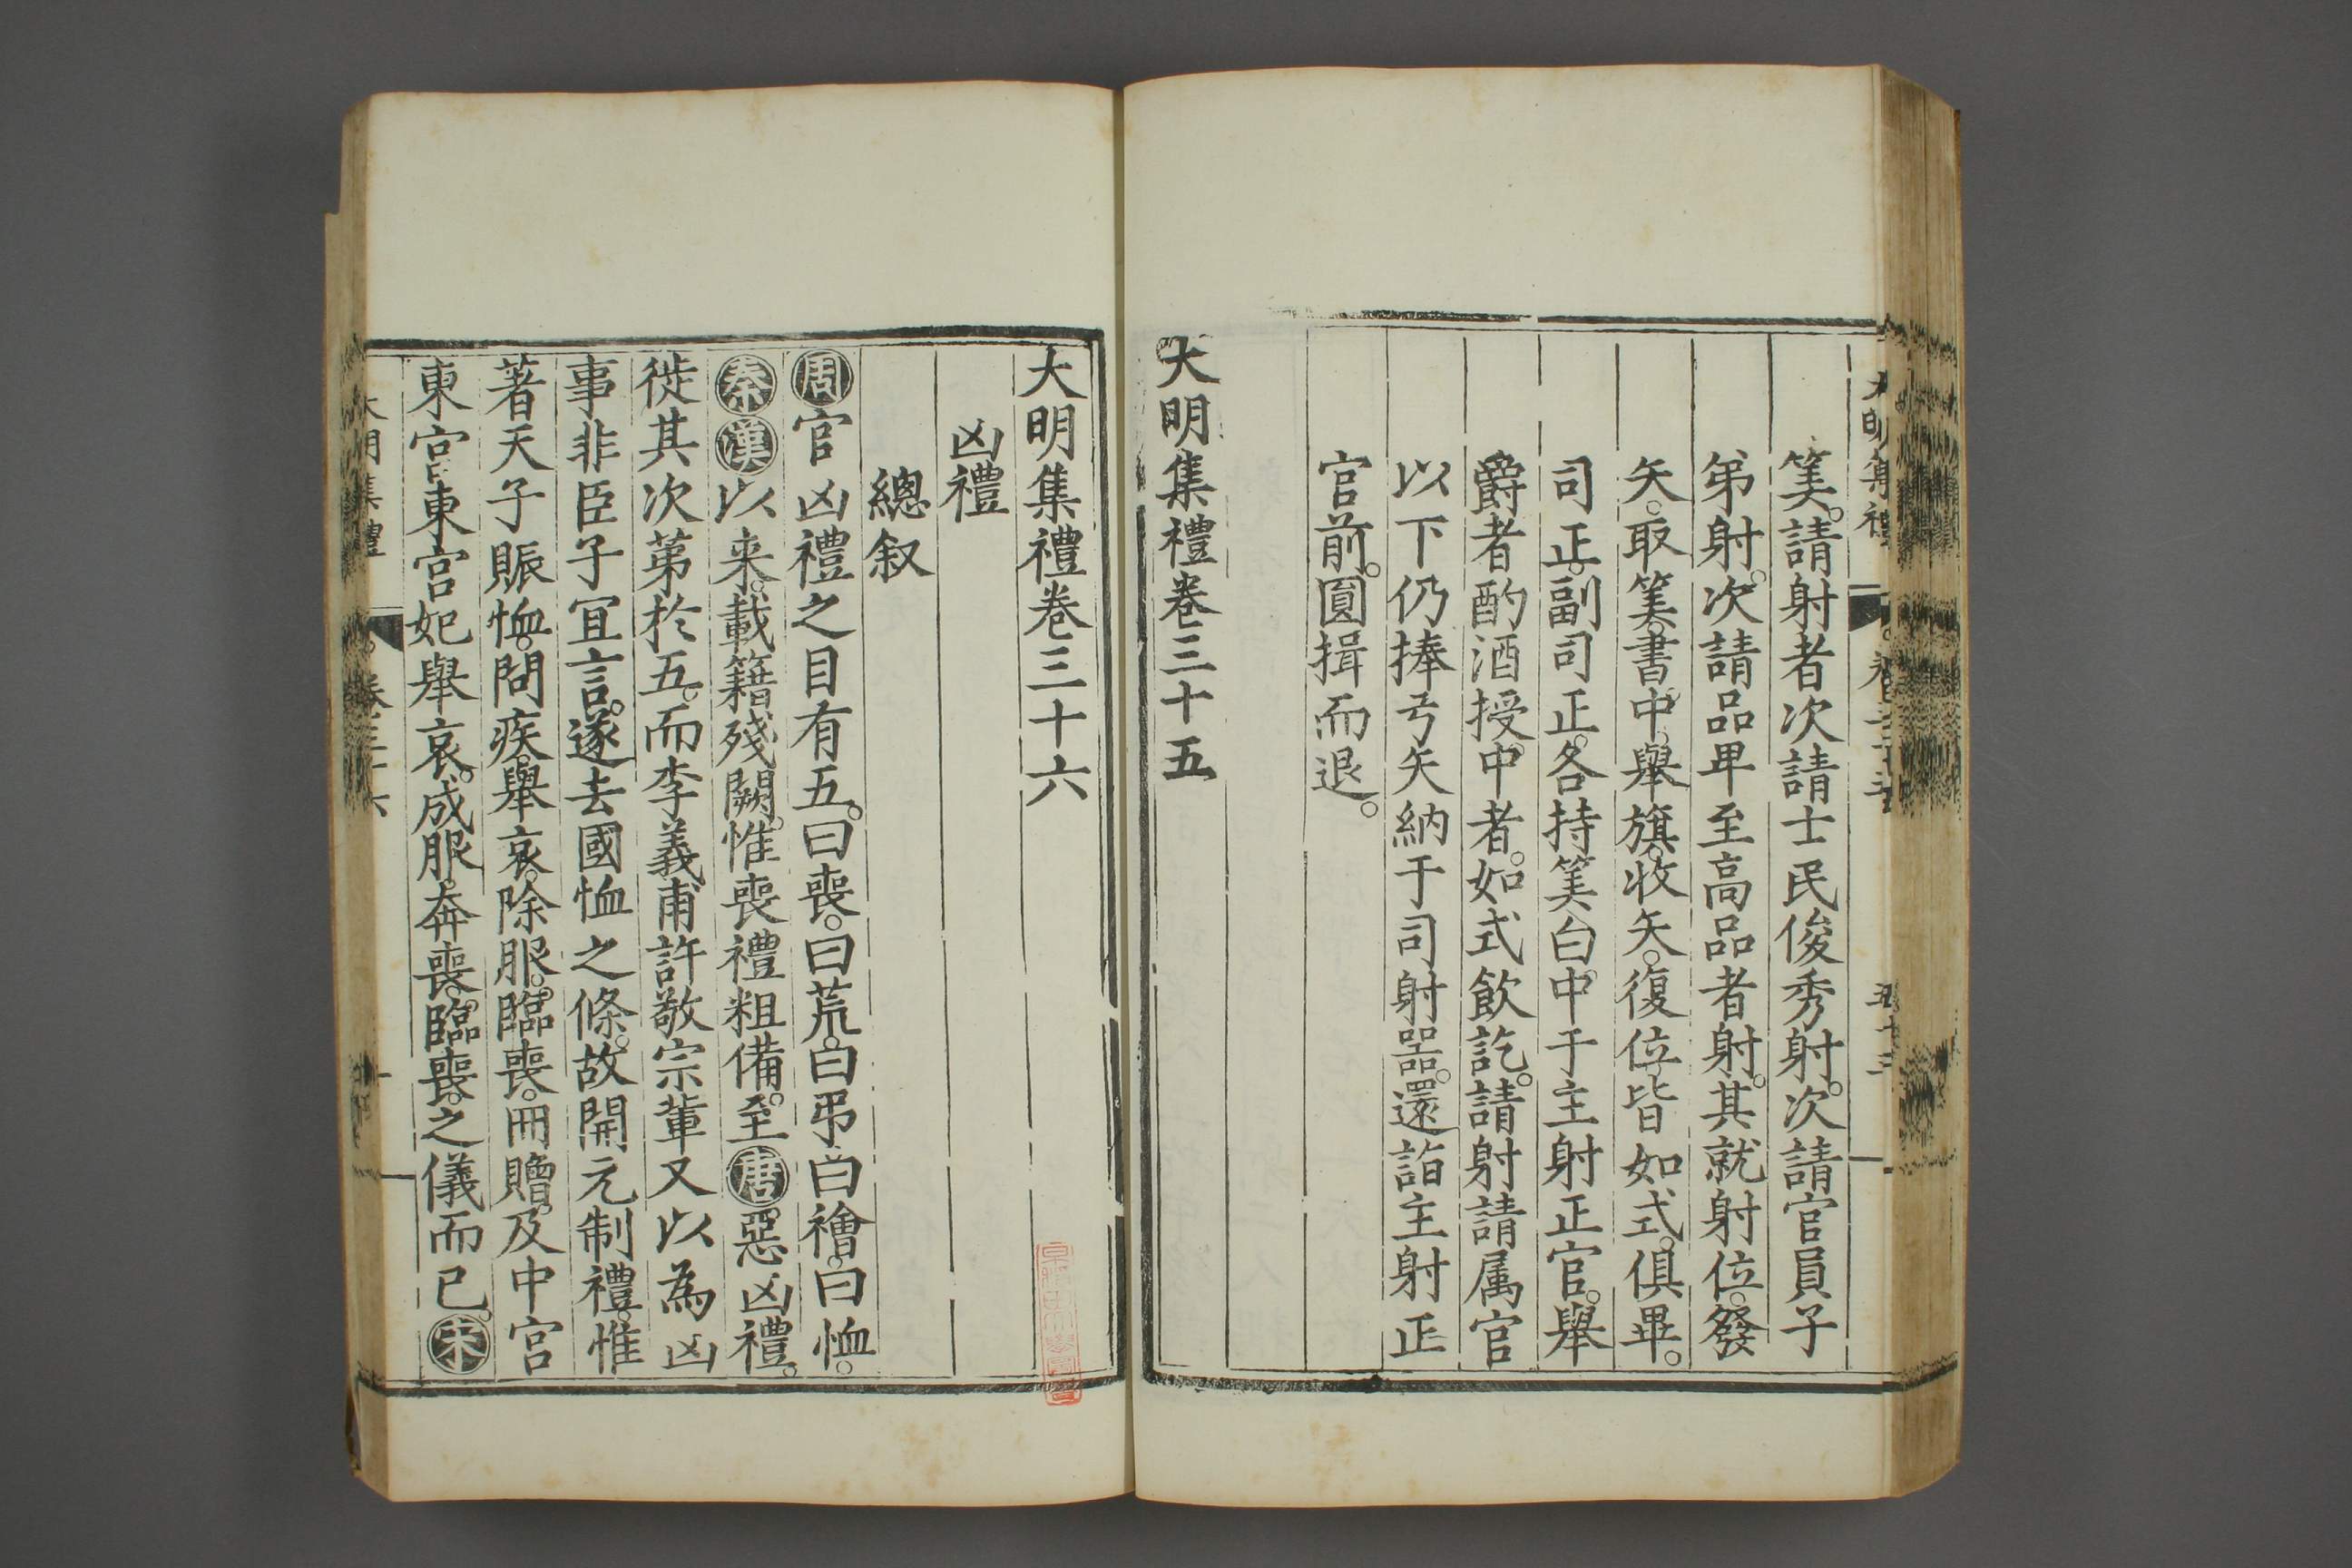 筭。請射者次請士民俊秀射。次請官員子
弟射。次請品卑至高品者射。其就射位。發
矢。取筭。書中。舉旗。收矢。復位。皆如式。俱畢。
司正。副司正。各持筭白。中于主射正官。舉
爵者酌酒授。中者。如式飲訖。請射請属官
以下仍捧弓矢納于司射噐。還詣主射正
官前。圓揖而退。
大明集禮卷三十五
大明集禮卷三十六
凶禮
總叙
周官凶禮之目有五。曰喪。曰荒。曰弔。曰禬。曰恤。
秦漢以来。載籍殘闕。惟喪禮粗備。至唐惡凶禮。
徙其次第於五。而李義甫許敬宗輩又以為凶
事非臣子宜言。遂去國恤之條。故開元制禮。惟
著天子賑恤。問疾。舉哀。除服。臨喪。冊贈。及中宮
東宮東宮妃舉哀。成服。奔喪。臨喪。之儀而已。宋
大明集禮
卷三十六